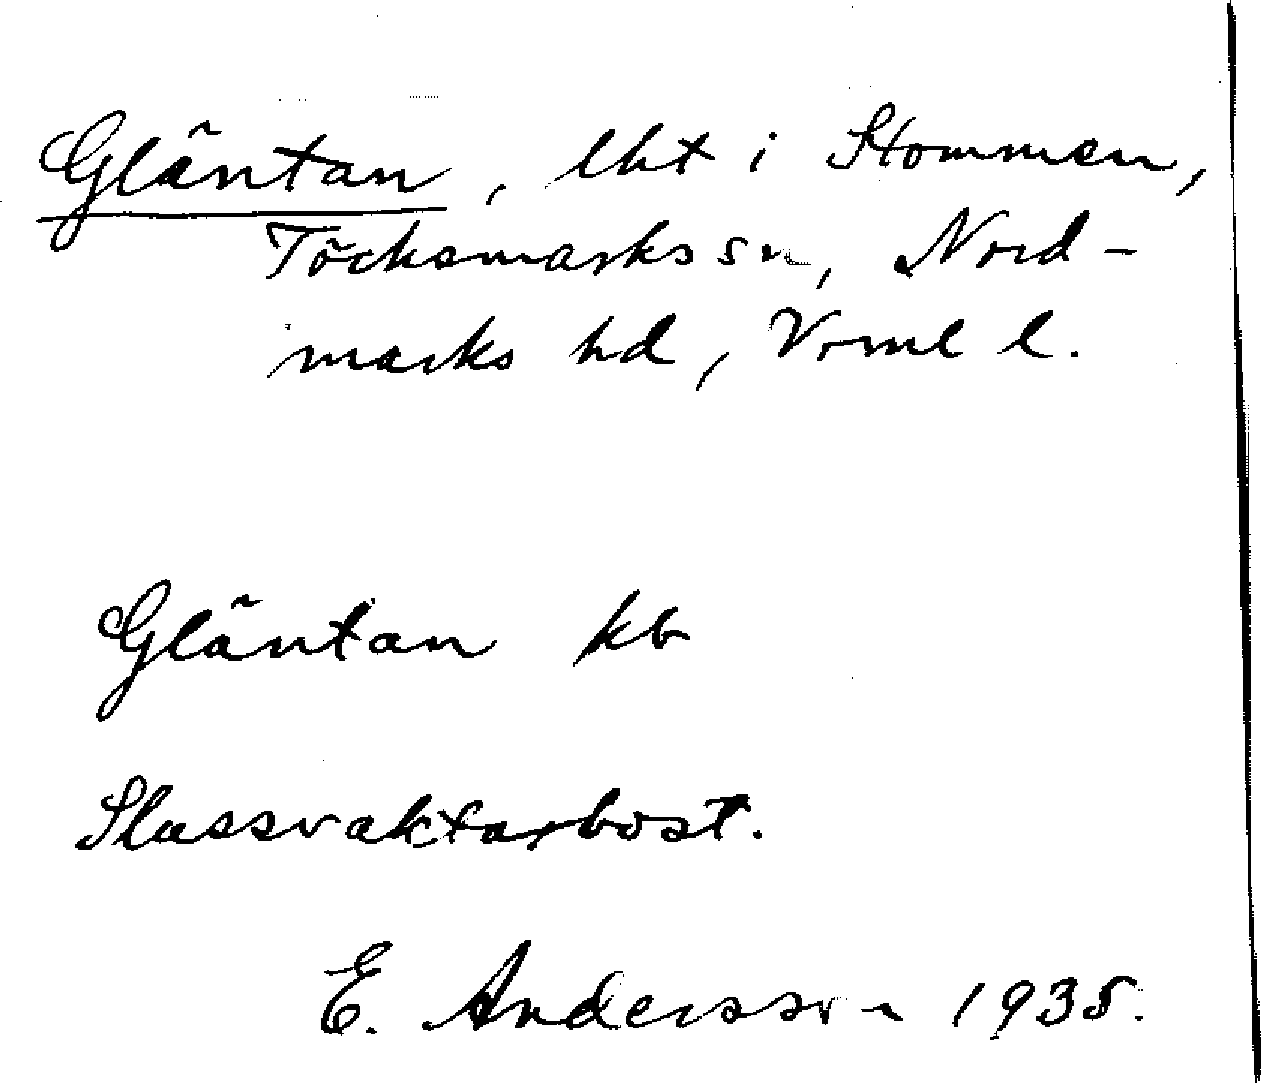 Gläntan, lht i Stommen,
Töcksmarks sn, Nord-
marks hd, Vrml l.
Gläntan kb
Slussvaktarbost.
E. Andersson 1935.